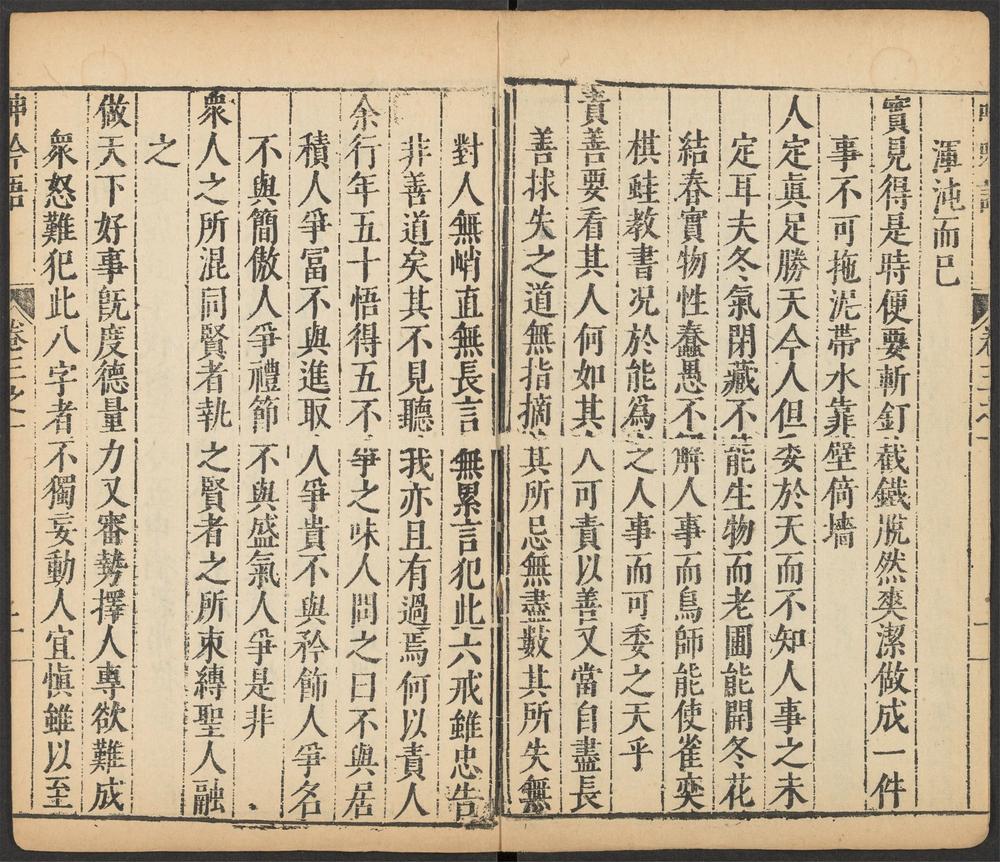 渾沌而已
實見得是時便要斬釘截鐵脱然爽潔做成一件
事不可拖泥帶水靠壁倚墻
人定眞足勝天今人但委於天而不知人事之未
定耳夫冬氣閉藏不能生物而老圃能開冬花
結春實物性蠢愚不解人事而鳥師能使雀奕
棋蛙教書况於能爲之人事而可委之天乎
責善要看其人何如其人可責以善又當自盡長
善捄失之道無指摘其所忌無盡數其所失無
對人無峭直無長言無累言犯此六戒雖忠告
非善道矣其不見聽我亦且有過焉何以責人
余行年五十悟得五不爭之味人問之曰不與居
積人爭富不與進取人爭貴不與矜飾人爭名
不與簡傲人爭禮節不與盛氣人爭是非
衆人之所混同賢者執之賢者之所束縛聖人融
之
做天下好事旣度德量力又審勢擇人專欲難成
衆怒難犯此八字者不獨妄動人宜愼雖以至
呻吟語 卷三之一